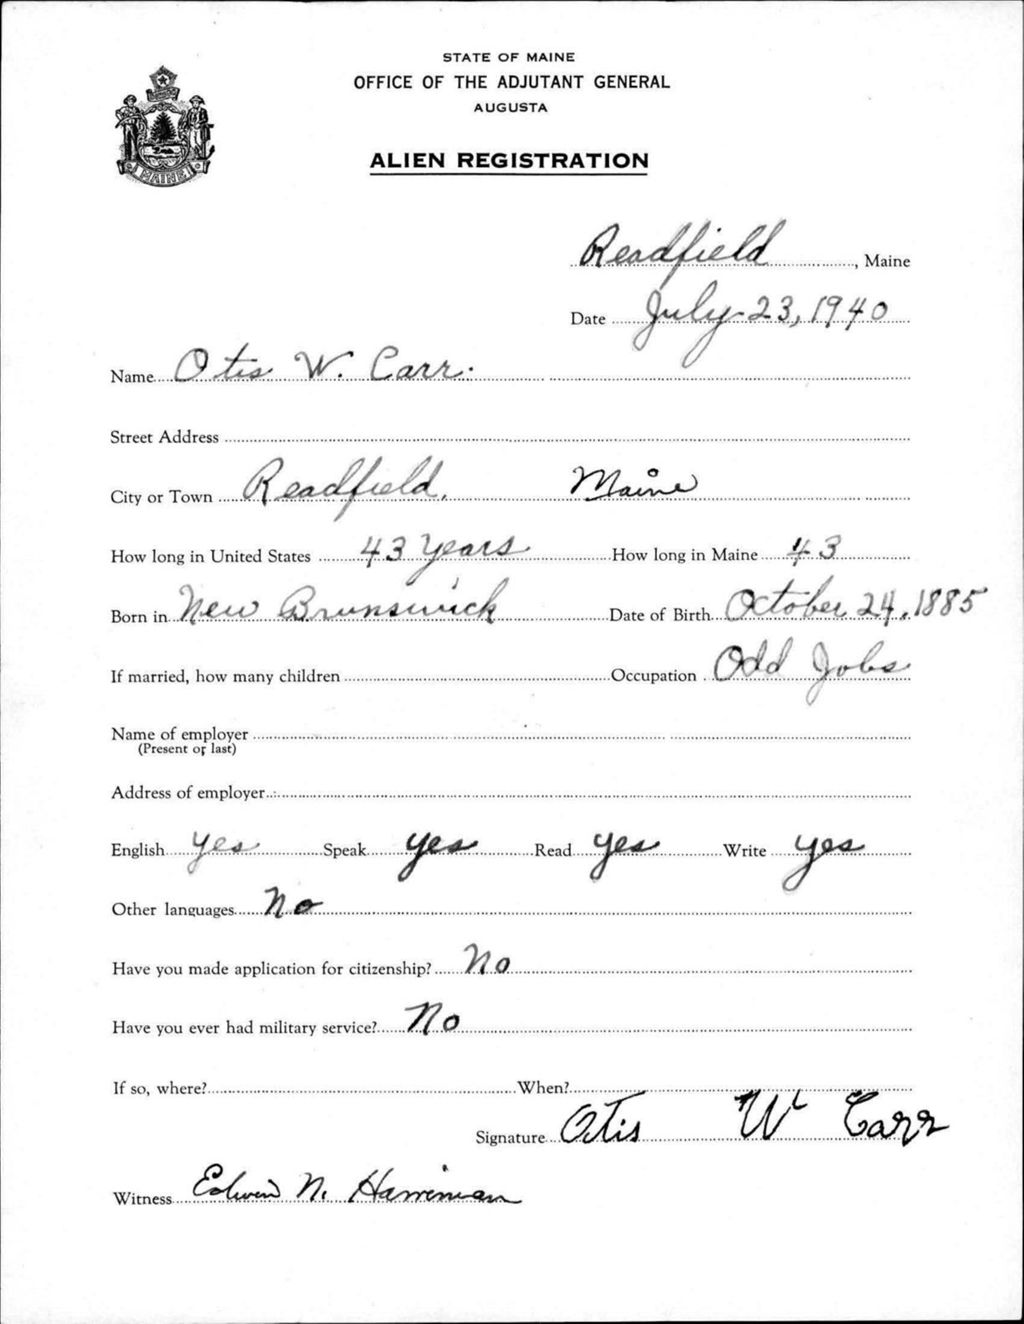 STATE OF MAINE
OFFICE OF THE ADJUTANT GENERAL
AUGUSTA
ALIEN REGISTRATION
MAINE
Readfield, Maine
Date July 23, 1940
Name Otis W. Carr.
Street Address
City or Town Readfield, Maine
How long in United States 43 Years How long in Maine 43
Born in New Brunswick Date of Birth October 24, 1885
If married, how many children Occupation Odd Jobs
Name of employer
(Present or last)
Address of employer
English yes Speak yes Read yes Write yes
Other languages No
Have you made application for citizenship? No
Have you ever had military service? No
If so, where? When?
Signature Otis W Carr
Witness Edwin N. Harriman